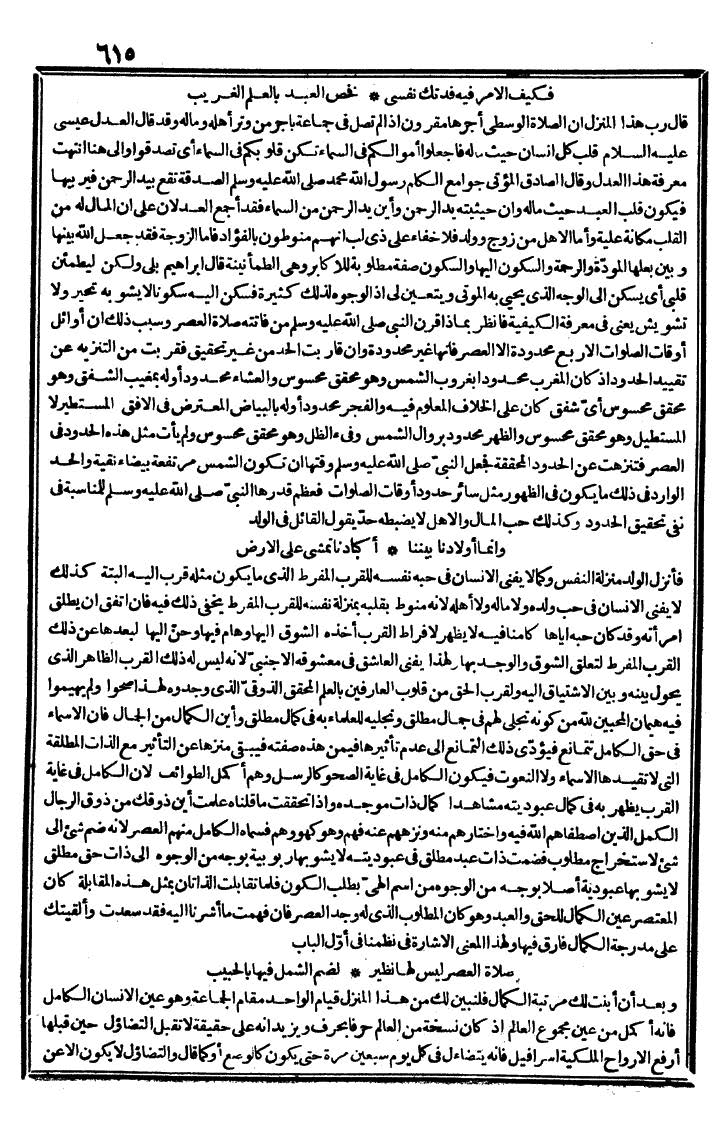 ٦١٥
فكيف الامر فيه فدتك نفسى * فخص العبد بالعلم الغريب
قال رب هذا المنزل ان الصلاة الوسطى أجرها مقرون اذا لم تصل فى جماعة بأجر من وتر أهله وماله وقد قال العدل عيسى
عليه السلام قلب كل انسان حيث ماله فاجعلوا أموالكم فى السماء تكن قلوبكم فى السماء أى تصدقوا والى هنا انتهت
معرفة هذا العدل وقال الصادق المؤتى جوامع الكلم رسول الله محمد صلى الله عليه وسلم الصدقة تقع بيد الرحمن فيربيها
فيكون قلب العبد حيث ماله وان حيثيته يد الرحمن وأين يد الرحمن من السماء فقد أجمع العدلان على ان المال له من
القلب مكانة علية وأما الاهل من زوج وولد فلا خفاء على ذى لب انهم منوطون بالفؤاد فاما الزوجة فقد جعل الله بينها
وبين بعلها المودّة والرحمة والسكون اليها والسكون صفة مطلوبة للا كابر وهى الطمأنينة قال ابراهيم بلى ولكن ليطمئن
قلبى أى يسكن الى الوجه الذى يحيى به الموتى ويتعين لى اذ الوجوه لذلك كثيرة فسكن اليه سكونا لا يشوبه تحير ولا
تشويش يعنى فى معرفة الكيفية فانظر بماذا قرن النبى صلى الله عليه وسلم من فاتته صلاة العصر وسبب ذلك ان أوائل
أوقات الصلوات الاربع محدودة الا العصر فانها غير محدودة وان قاربت الحد من غير تحقيق فقربت من التنزيه عن
تقييد الحدود اذ كان المغرب محدودا بغروب الشمس وهو محقق محسوس والعشاء محدود أوله بمغيب الشفق وهو
محقق محسوس أىّ شفق كان على الخلاف المعلوم فيه والفجر محدود أوله بالبياض المعترض فى الافق المستطير لا
المستطيل وهو محقق محسوس والظهر محدود بزوال الشمس وفىء الظل وهو محقق محسوس ولم يأت مثل هذه الحدود فى
العصر فتنزهت عن الحدود المحققة فجعل النبىّ صلى الله عليه وسلم وقتها ان تكون الشمس مرتفعة بيضاء نقية والحد
الوارد فى ذلك ما يكون فى الظهور مثل سائر حدود أوقات الصلوات فعظم قدرها النبىّ صلى الله عليه وسلم للمناسبة فى
نفى تحقيق الحدود وكذلك حب المال والاهل لا يضبطه حدّ يقول القائل فى الولد
وانما أولادنا بيننا * أكبادنا تمشى على الارض
فأنزل الولد منزلة النفس وكما لا يفنى الانسان فى حبه نفسه للقرب المفرط الذى ما يكون مثله قرب اليه البتة كذلك
لا يفنى الانسان فى حب ولده ولا ماله ولا أهله لانه منوط بقلبه بمنزلة نفسه للقرب المفرط يخفى ذلك فيه فان اتفق ان يطلق
امرأته وقد كان حبه اياها كامنا فيه لا يظهر لافراط القرب أخذه الشوق اليها وهام فيها وحنّ اليها لبعدها عن ذلك
القرب المفرط لتعلق الشوق والوجد بها ولهذا يفنى العاشق فى معشوقه الاجنبىّ لانه ليس له ذلك القرب الظاهر الذى
يحول بينه وبين الاشتياق اليه ولقرب الحق من قلوب العارفين بالعلم المحقق الذوقىّ الذى وجدوه لهذا صحوا ولم يهيموا
فيه هيمان المحبين لله من كونه تجلى لهم فى جمال مطلق وتجليه للعلماء به فى كمال مطلق وأين الكمال من الجمال فان الاسماء
فى حق الكامل تتمانع فيؤدّى ذلك التمانع الى عدم تأثيرها فيمن هذه صفته فيبقى منزها عن التأثير مع الذات المطلقة
التى لا تقيدها الاسماء ولا النعوت فيكون الكامل فى غاية الصحو كالرسل وهم أكمل الطوائف لان الكامل فى غاية
القرب يظهر به فى كمال عبوديته مشاهدا كمال ذات موجده واذا تحققت ما قلناه علمت أين ذوقك من ذوق الرجال
الكمل الذين اصطفاهم الله فيه واختارهم منه ونزههم عنه فهم وهو كهو وهم فسماه الكامل منهم العصر لانه ضم شئ الى
شئ لاستخراج مطلوب فضمت ذات عبد مطلق فى عبوديته لا يشوبها ربوبية بوجه من الوجوه الى ذات حق مطلق
لا يشوبها عبودية أصلا بوجه من الوجوه من اسم الهىّ بطلب الكون فلما تقابلت الذاتان بمثل هذه المقابلة كان
المعتصر عين الكمال للحق والعبد وهو كان المطلوب الذى له وجد العصر فان فهمت ما أشرنا اليه فقد سعدت وألقيتك
على مدرجة الكمال فارق فيها ولهذا المعنى الاشارة فى نظمنا فى أوّل الباب
صلاة العصر ليس لها نظير * لضم الشمل فيها بالحبيب
وبعد أن أبنت لك مرتبة الكمال فلنبين لك من هذا المنزل قيام الواحد مقام الجماعة وهو عين الانسان الكامل
فانه أكمل من عين مجموع العالم اذ كان نسخة من العالم حرفا بحرف ويزيد انه على حقيقة لا تقبل التضاؤل حين قبلها
أرفع الارواح الملكية اسرافيل فانه يتضاءل فى كل يوم سبعين مرة حتى يكون كالوصع أو كما قال والتضاؤل لا يكون الا عن